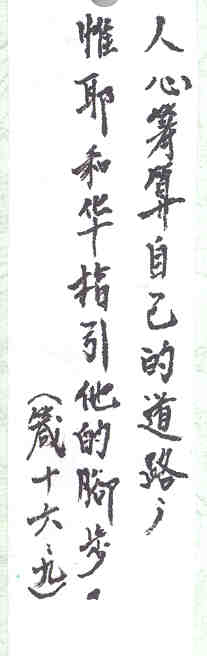 人心筹算自己的道路；
惟耶和华指引他的腳步。
（箴十六：九）